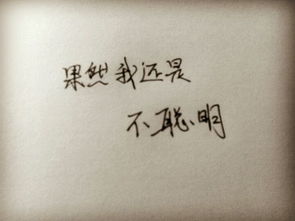 果然我还是
不聪明